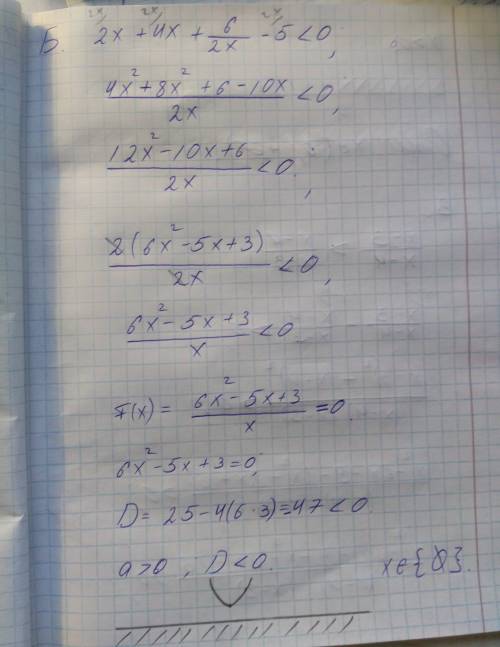 Б. 2x + 4x + 6/2x - 5 < 0;
(4x² + 8x² + 6 - 10x)/2x < 0;
(12x² - 10x + 6)/2x < 0;
2(6x² - 5x + 3)/2x < 0;
(6x² - 5x + 3)/x < 0
F(x) = (6x² - 5x + 3)/x = 0
6x² - 5x + 3 = 0;
D = 25 - 4(6·3) = -47 < 0
a > 0; D < 0. x∈{Ø}.